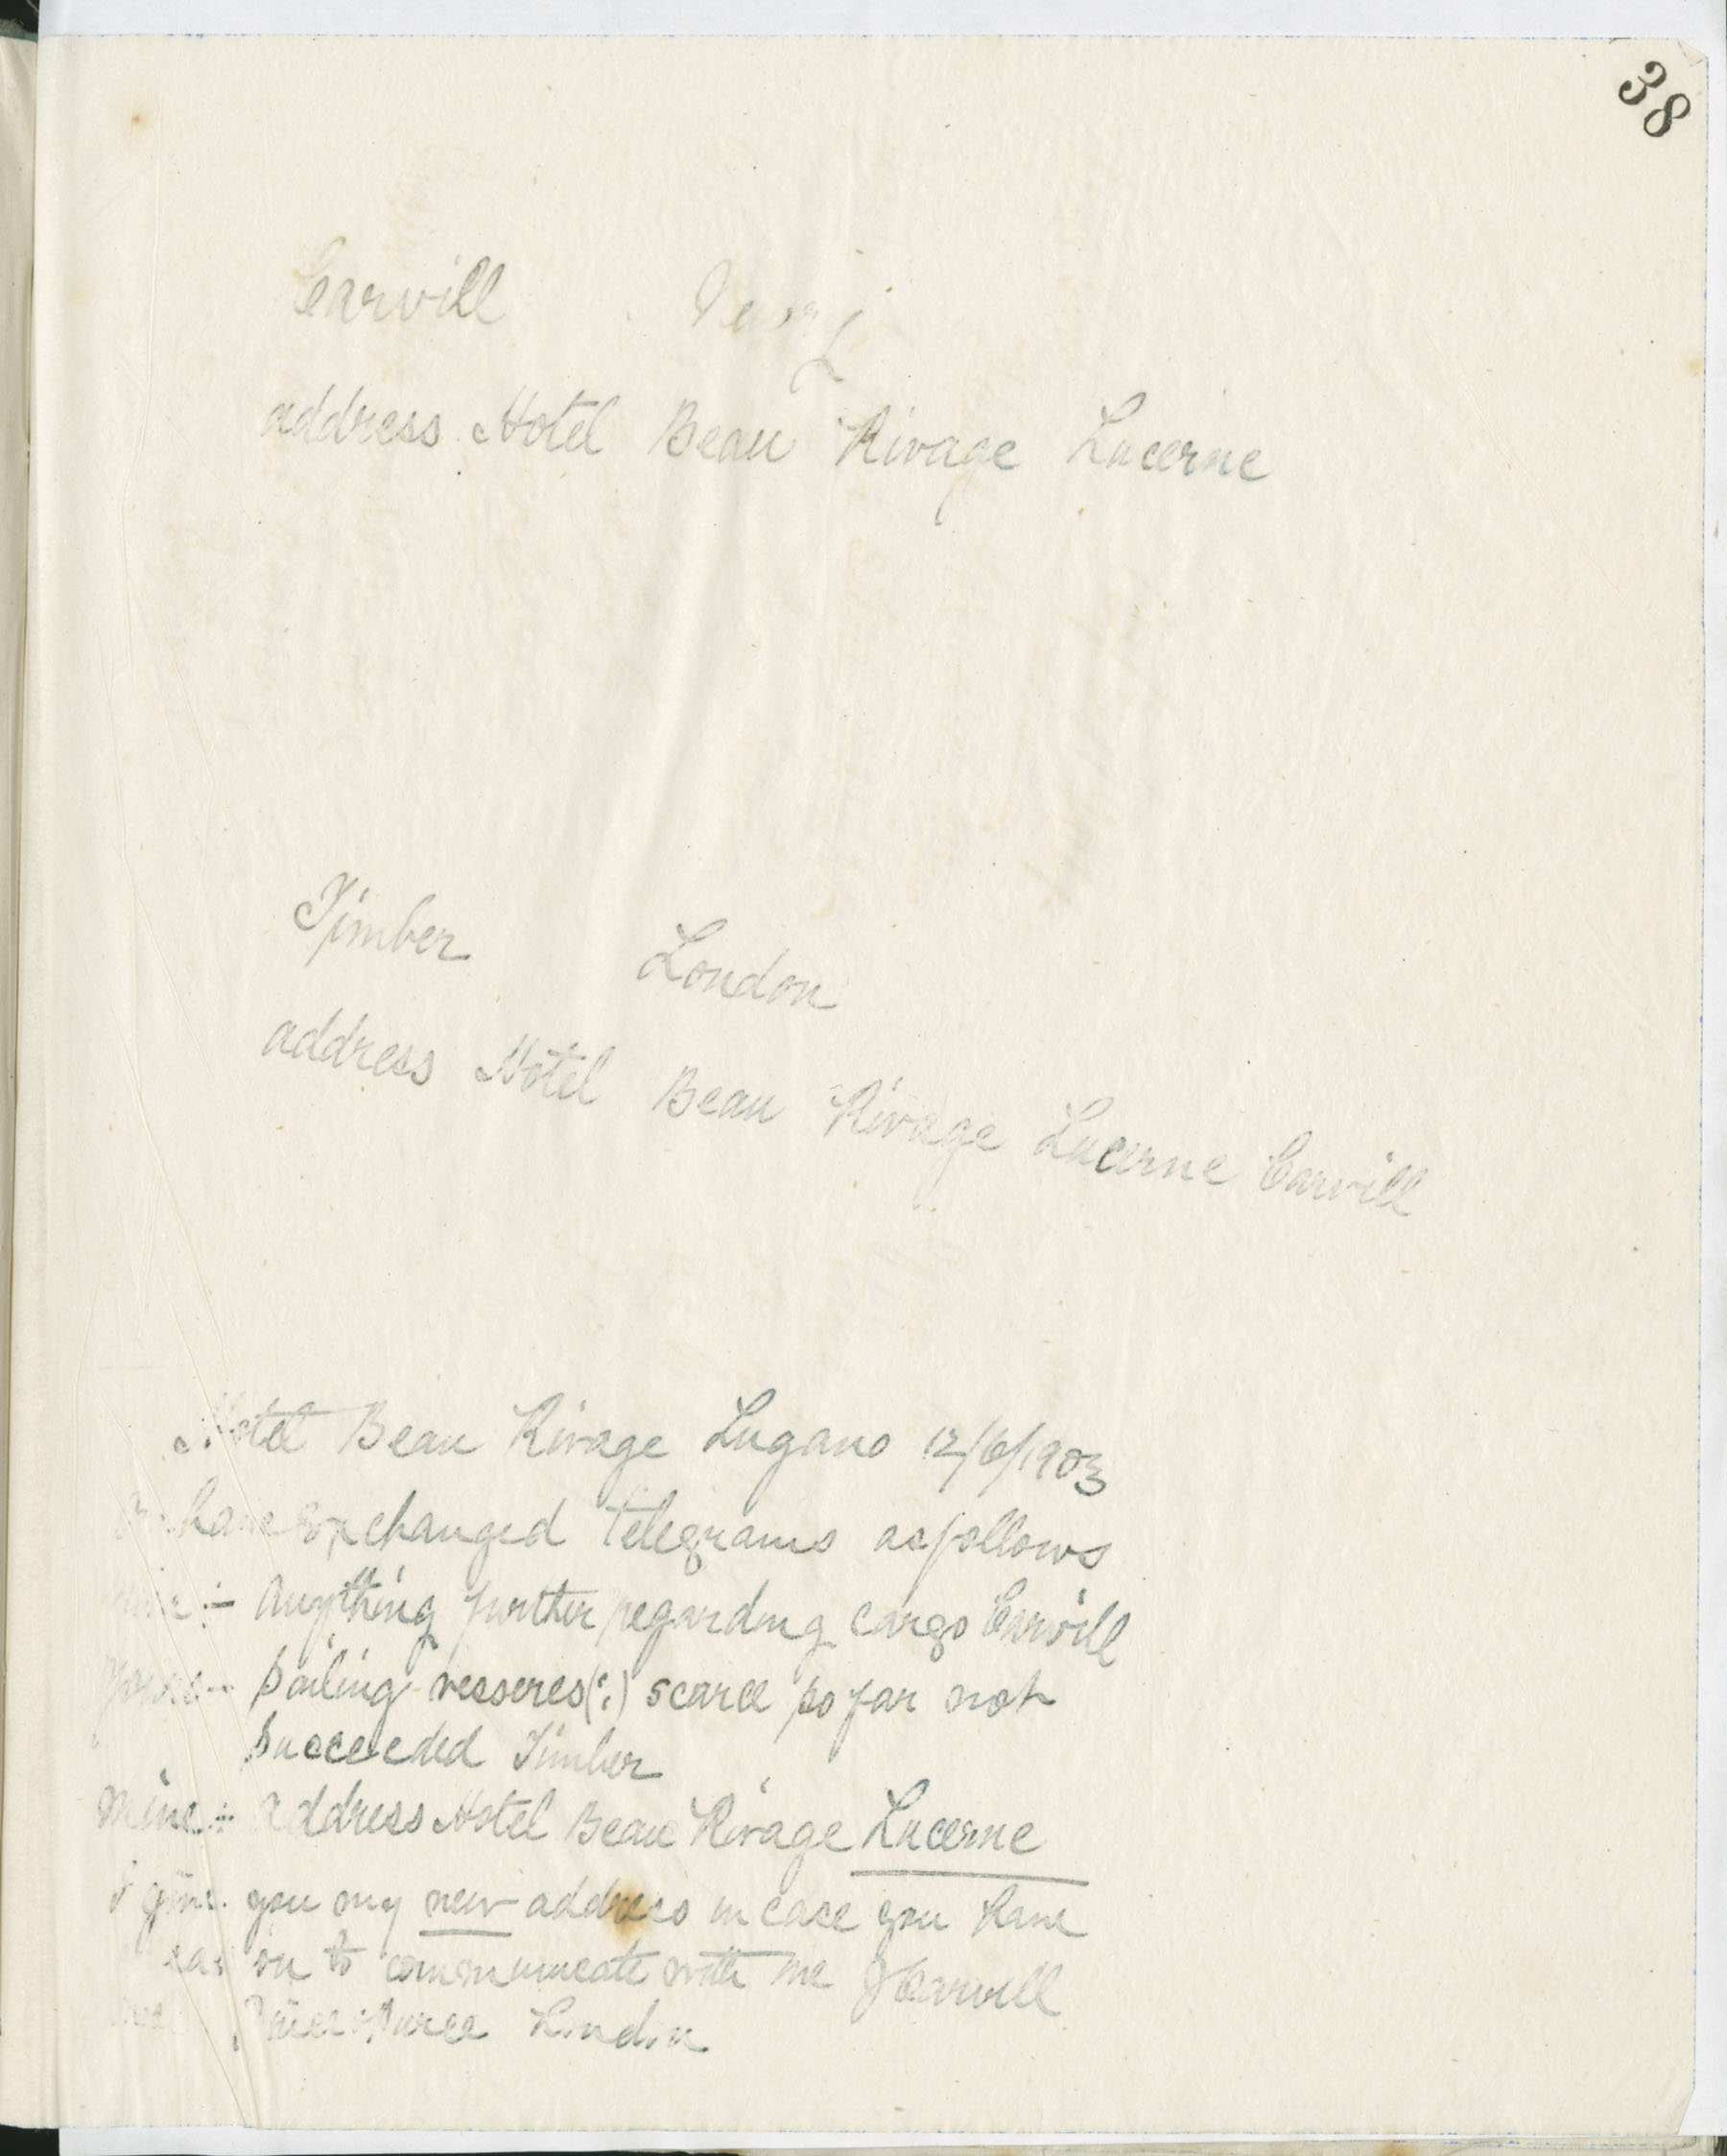 38
Carvill Newry
address Hotel Beau Rivage Lucerne
Timber London
address Hotel Beau Rivage Lucerne Carvill
Hotel Beau Rivage Lugano 12/6/1903
have exchanged telegrams as follows
mine :- Anything further regarding cargo Carvill
yours :- Sailing vesseres(?) scarce so far not
succeeded Timber
Mine :- Address Hotel Beau Rivage Lucerne
I give you my new address in case you have
reason to communicate with me J Carvill
Price & Pierce London